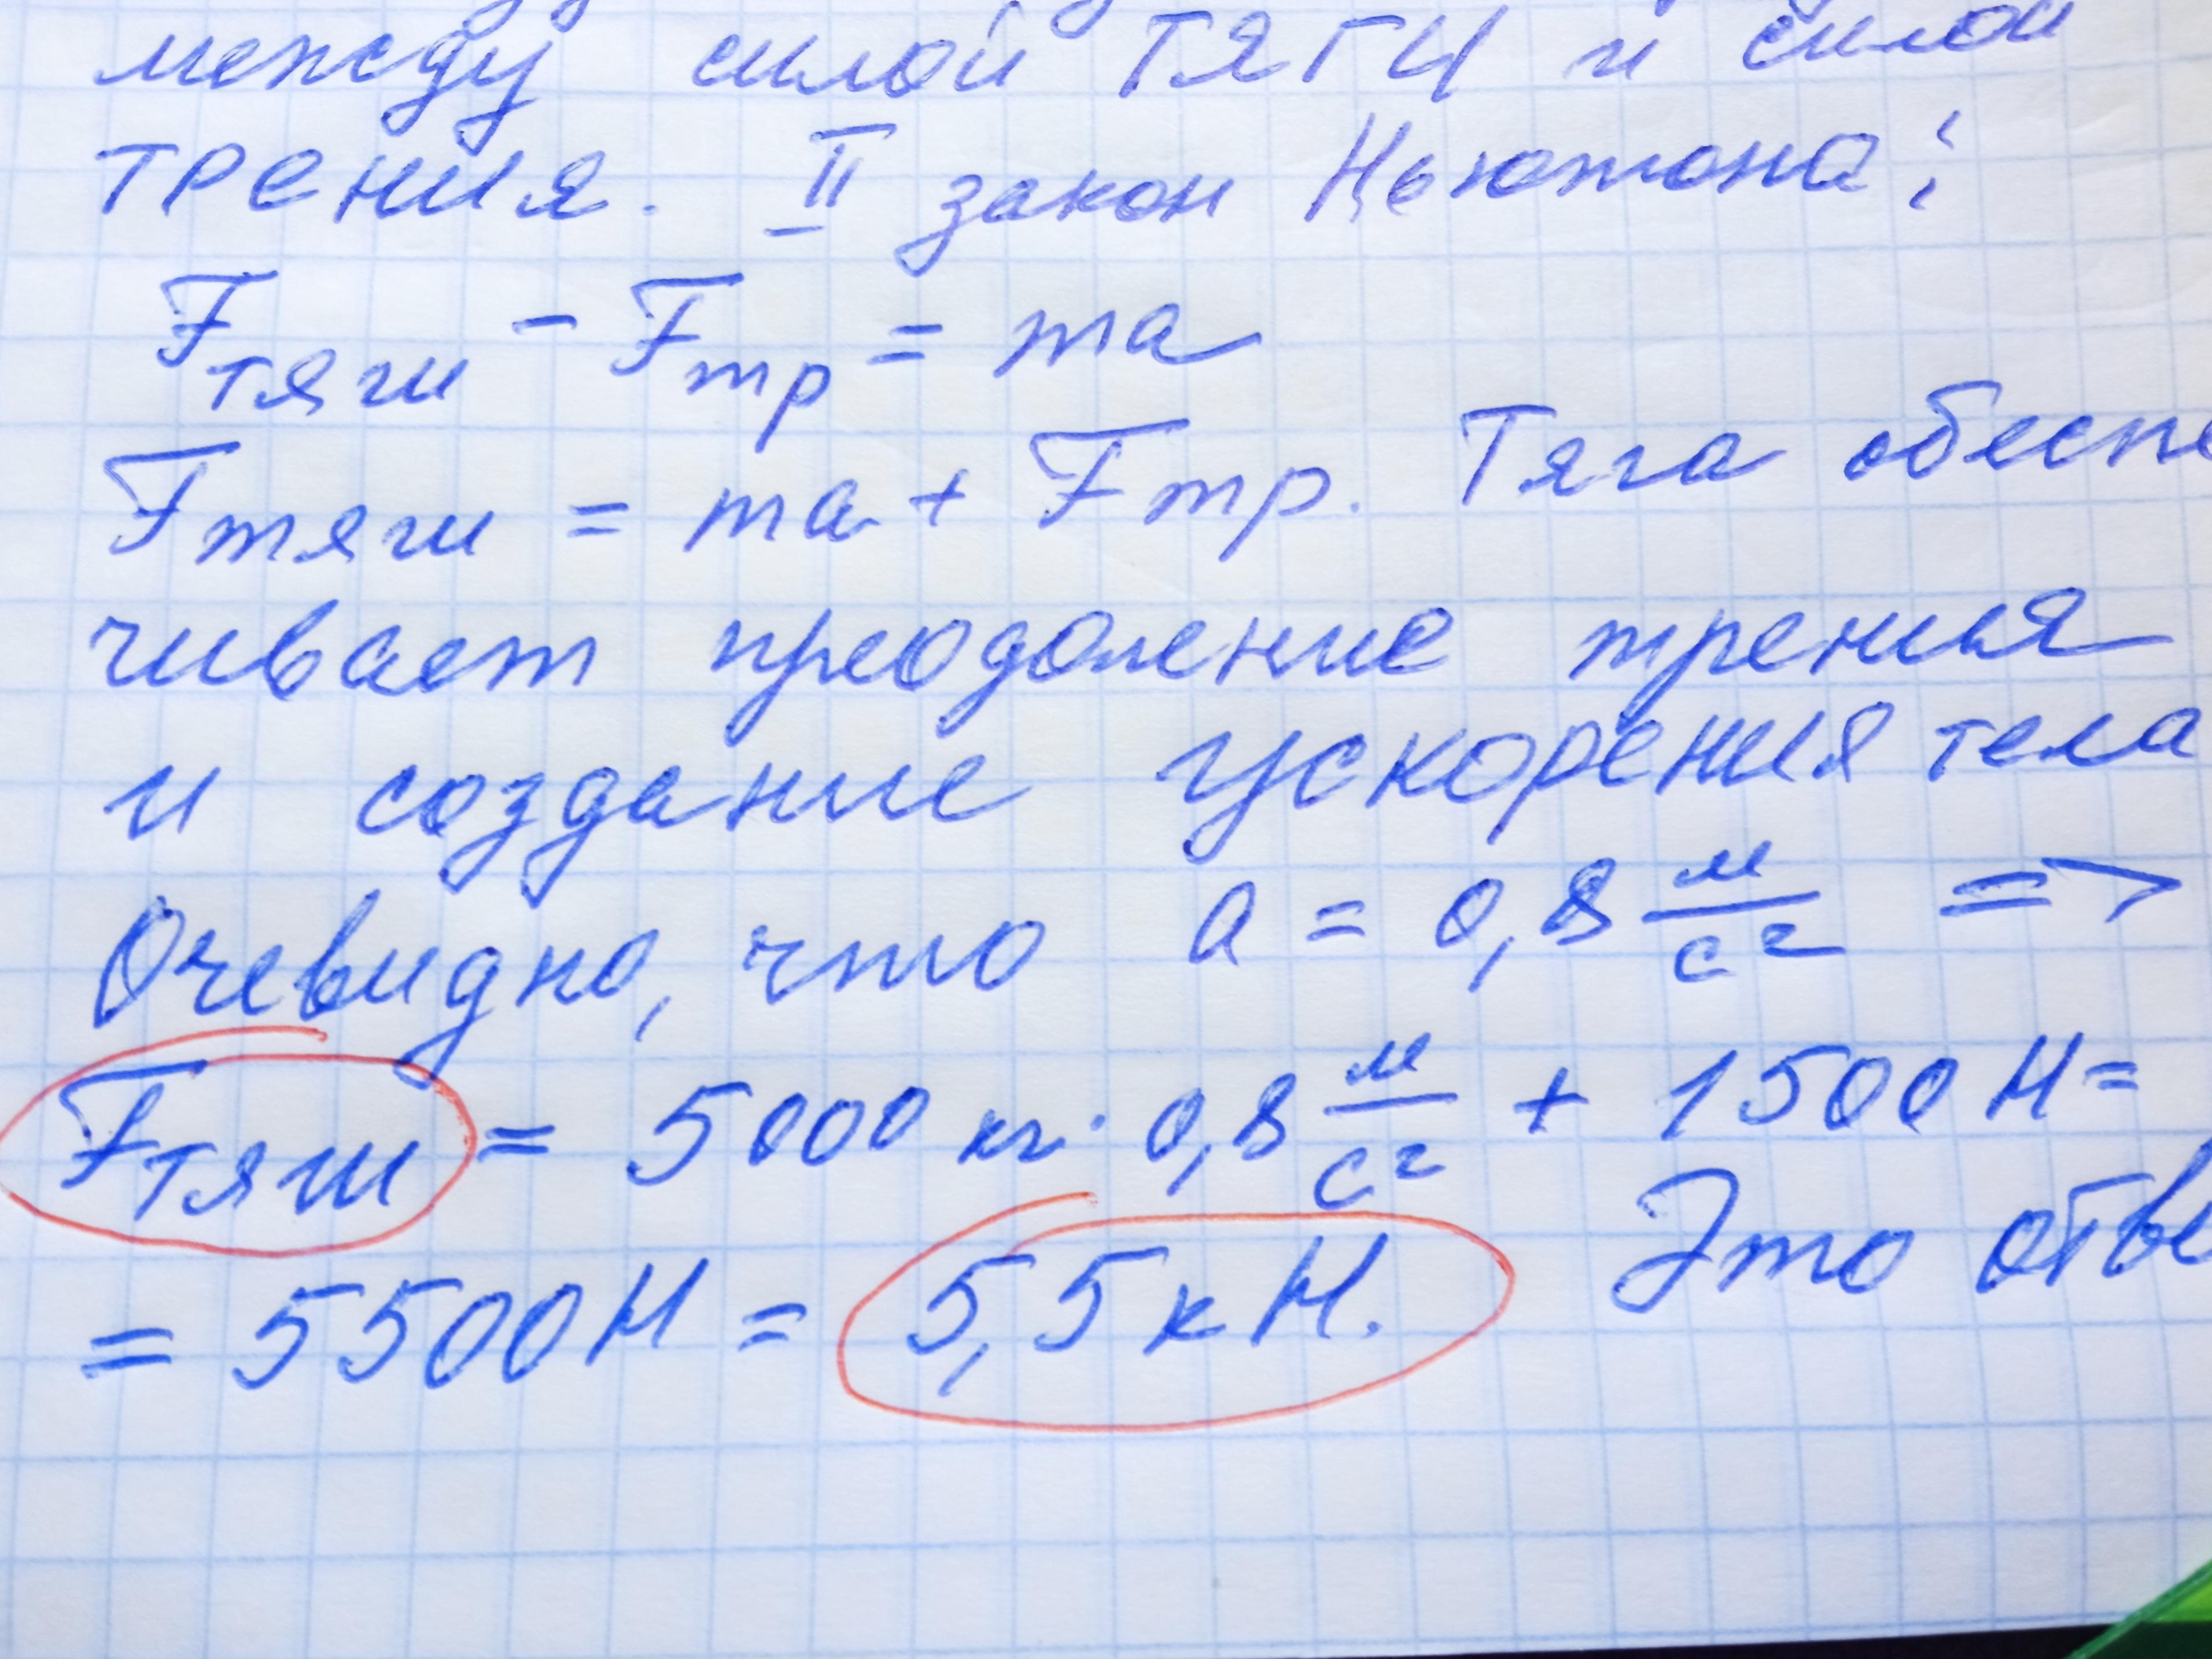 между силой ТЯГИ и силой
трения. II закон Ньютона:
Fтяги - Fтр = ma
Fтяги = ma + Fтр. Тяга обеспе
чивает преодоление трения
и создание ускорения тела
Очевидно, что a = 0,8 м/с² =>
Fтяги = 5000 кг · 0,8 м/с² + 1500 Н =
= 5500 Н = 5,5 кН. Это отве